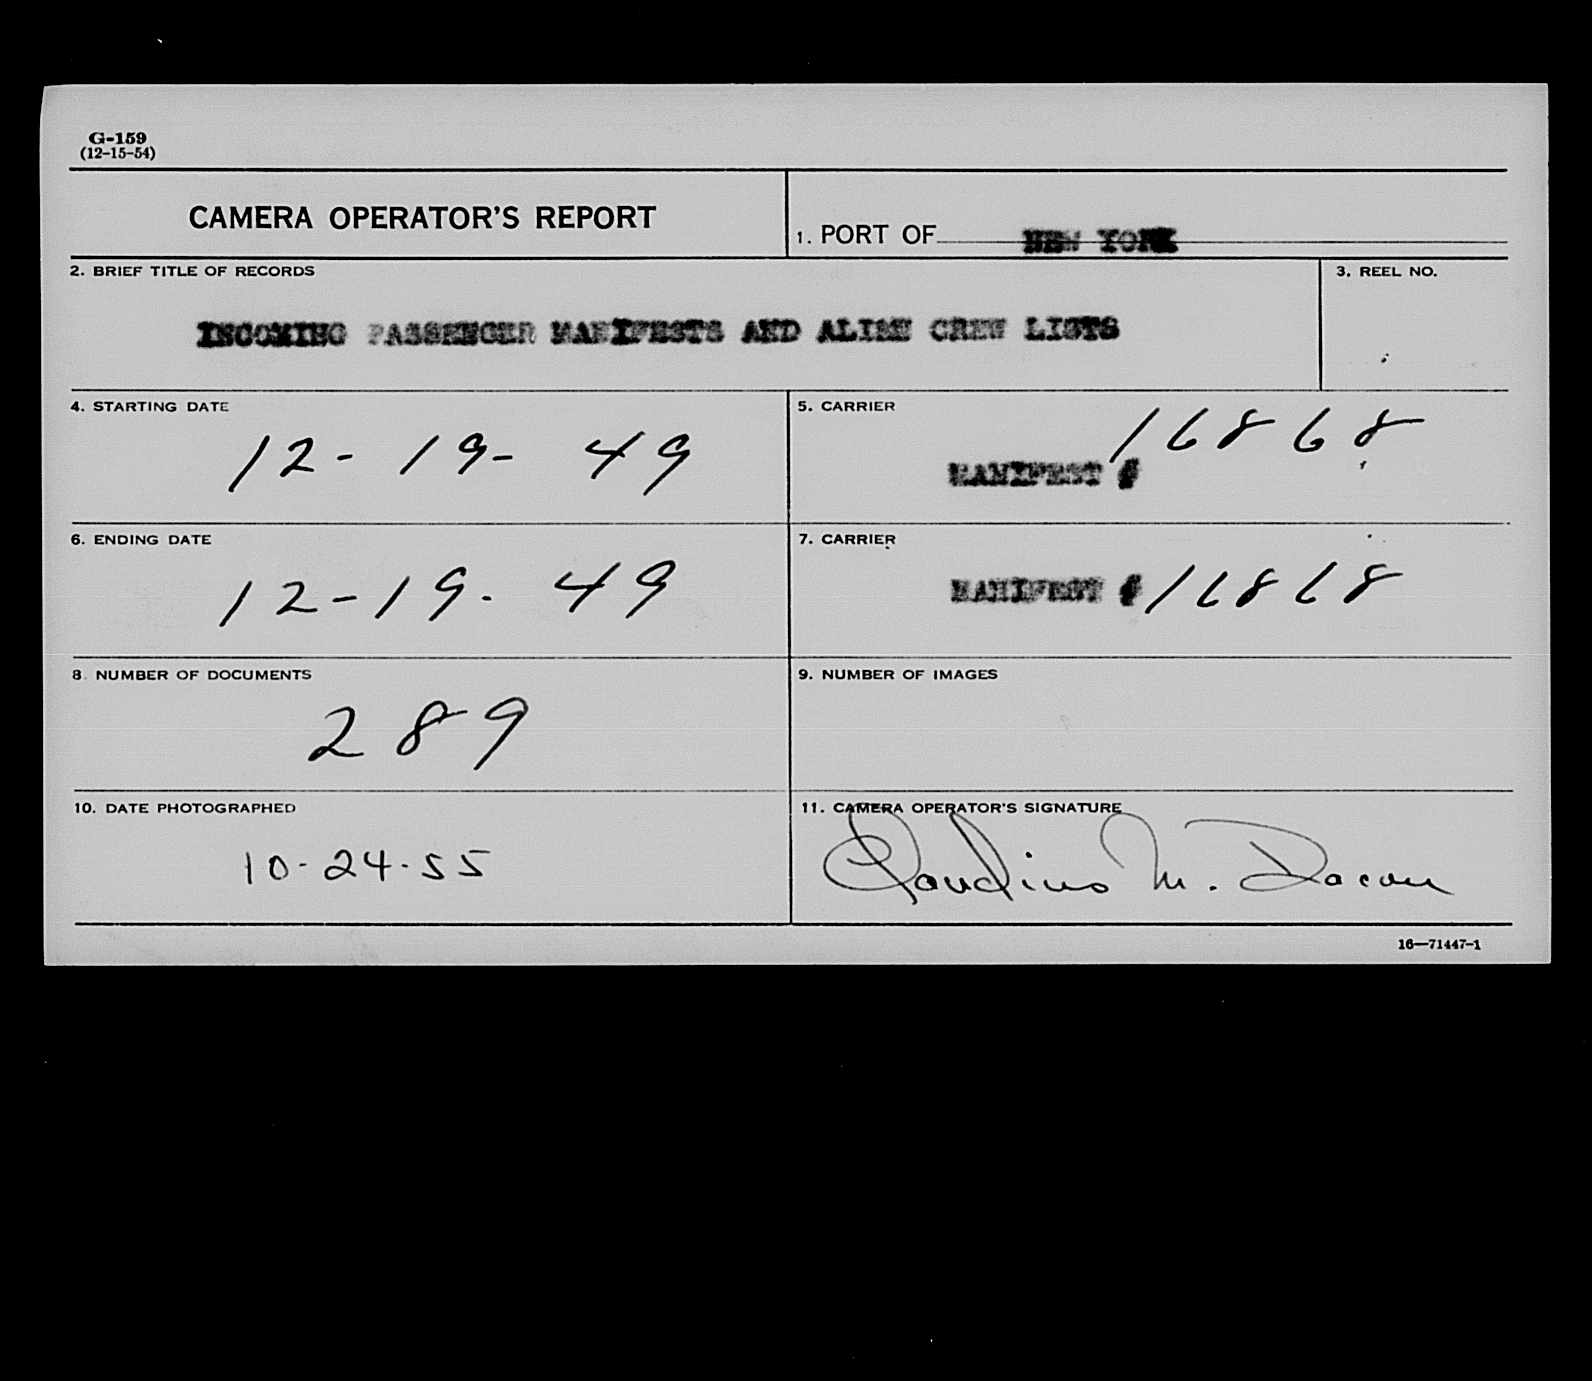 G-159
(12-15-54)
CAMERA OPERATOR'S REPORT
1. PORT OF NEW YORK
2. BRIEF TITLE OF RECORDS
3. REEL NO.
INCOMING PASSENGER MANIFESTS AND ALIEN CREW LISTS
4. STARTING DATE
12-19-49
5. CARRIER
MANIFEST # 16868
6. ENDING DATE
12-19-49
7. CARRIER
MANIFEST # 16868
8. NUMBER OF DOCUMENTS
289
9. NUMBER OF IMAGES
10. DATE PHOTOGRAPHED
10-24-55
11. CAMERA OPERATOR'S SIGNATURE
Claudino M.
16—71447-1